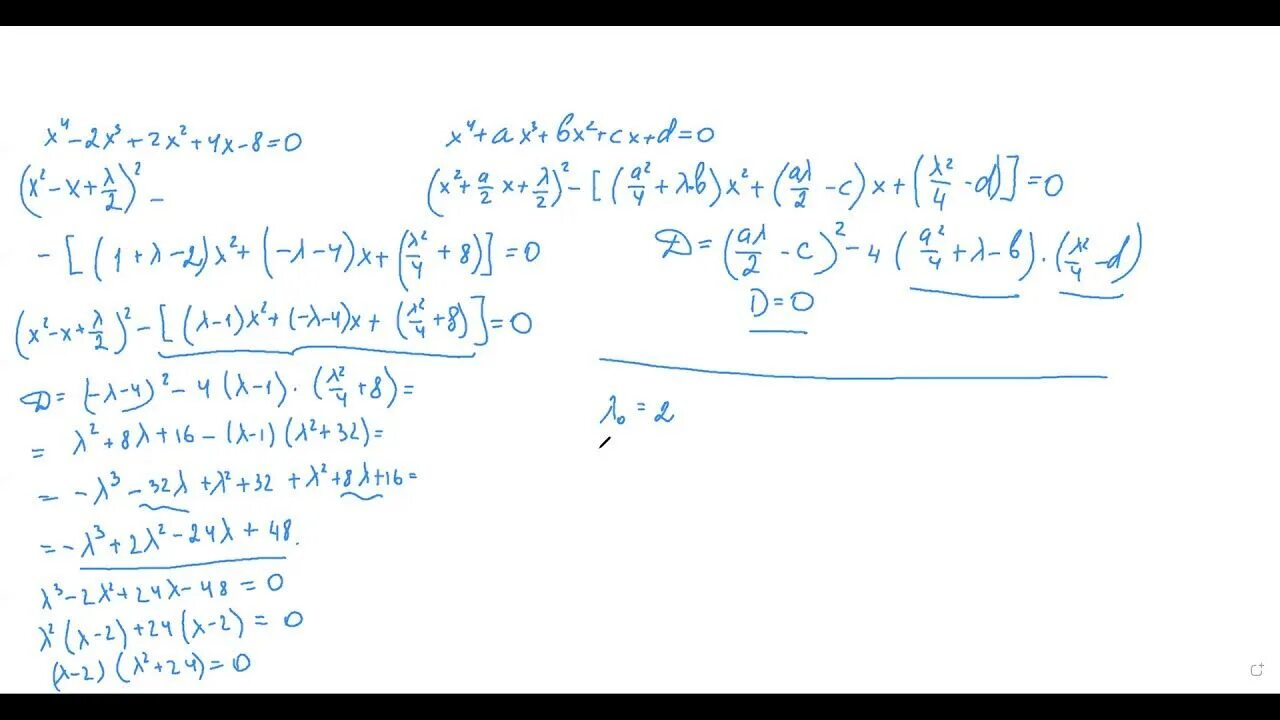 x⁴ - 2x³ + 2x² + 4x - 8 = 0
(x² - x + λ/2)² -
- [(1 + λ - 2)x² + (-λ - 4)x + (λ²/4 + 8)] = 0
(x² - x + λ/2)² - [(λ-1)x² + (-λ-4)x + (λ²/4 + 8)] = 0
D = (-λ-4)² - 4(λ-1)·(λ²/4 + 8) =
= λ² + 8λ + 16 - (λ-1)(λ² + 32) =
= -λ³ - 32λ + λ² + 32 + λ² + 8λ + 16 =
= -λ³ + 2λ² - 24λ + 48.
λ³ - 2λ² + 24λ - 48 = 0
λ²(λ-2) + 24(λ-2) = 0
(λ-2)(λ² + 24) = 0
x⁴ + ax³ + bx² + cx + d = 0
(x² + a/2 x + λ/2)² - [(a²/4 + λ-b)x² + (aλ/2 - c)x + (λ²/4 - d)] = 0
D = (aλ/2 - c)² - 4(a²/4 + λ - b)·(λ²/4 - d)
D = 0
λ₀ = 2